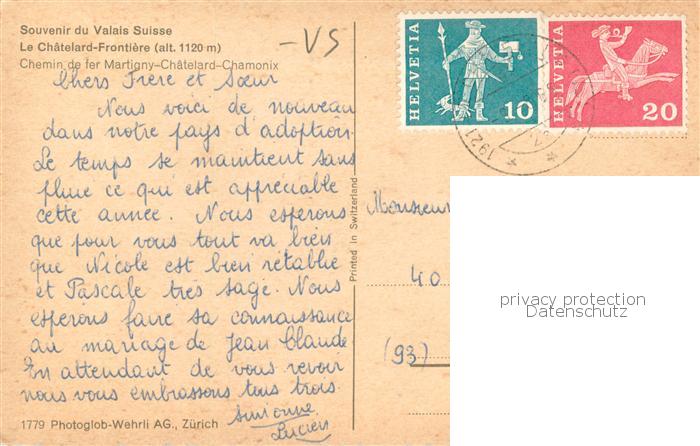 Souvenir du Valais Suisse
Le Châtelard-Frontière (alt. 1120 m)
Chemin de fer Martigny-Châtelard-Chamonix
-VS
Chers Frere et Sœur
Nous voici de nouveau
dans notre pays d'adoption.
Le temps se maintient sans
pluie ce qui est appréciable
cette année. Nous esperons
que pour vous tout va bien
que Nicole est bien retablie
et Pascale tres sage. Nous
esperons faire sa connaissance
au mariage de Jean Claude.
En attendant de vous revoir
nous vous embrassons tous trois.
Lucien
1779 Photoglob-Wehrli AG., Zürich
Printed in Switzerland
HELVETIA
10
HELVETIA
20
1921
Monsieur
40
(93)
privacy protection
Datenschutz